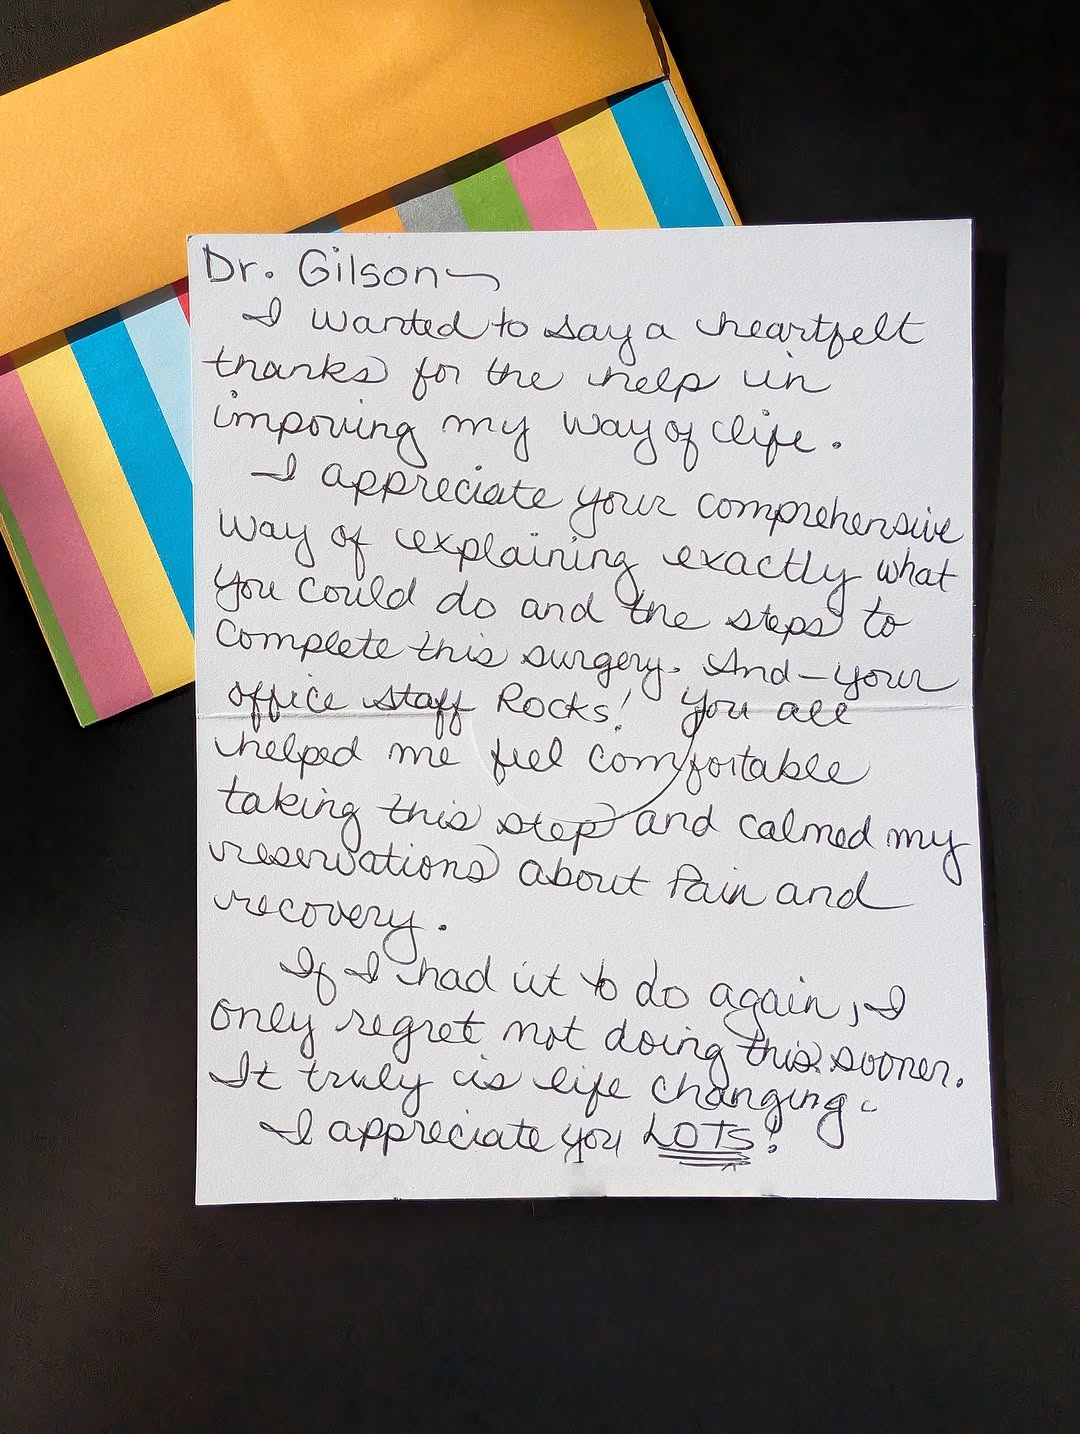 Dr. Gilson-
I wanted to say a heartfelt
thanks for the help in
impoving my way of life.
I appreciate your comprehensive
way of explaining exactly what
you could do and the steps to
complete this surgery. And-your
office staff Rocks! You all
helped me feel comfortable
taking this step and calmed my
reservations about Pain and
recovery.
If I had it to do again, I
only regret not doing this sooner.
It truly is life changing.
I appreciate you LOTS!